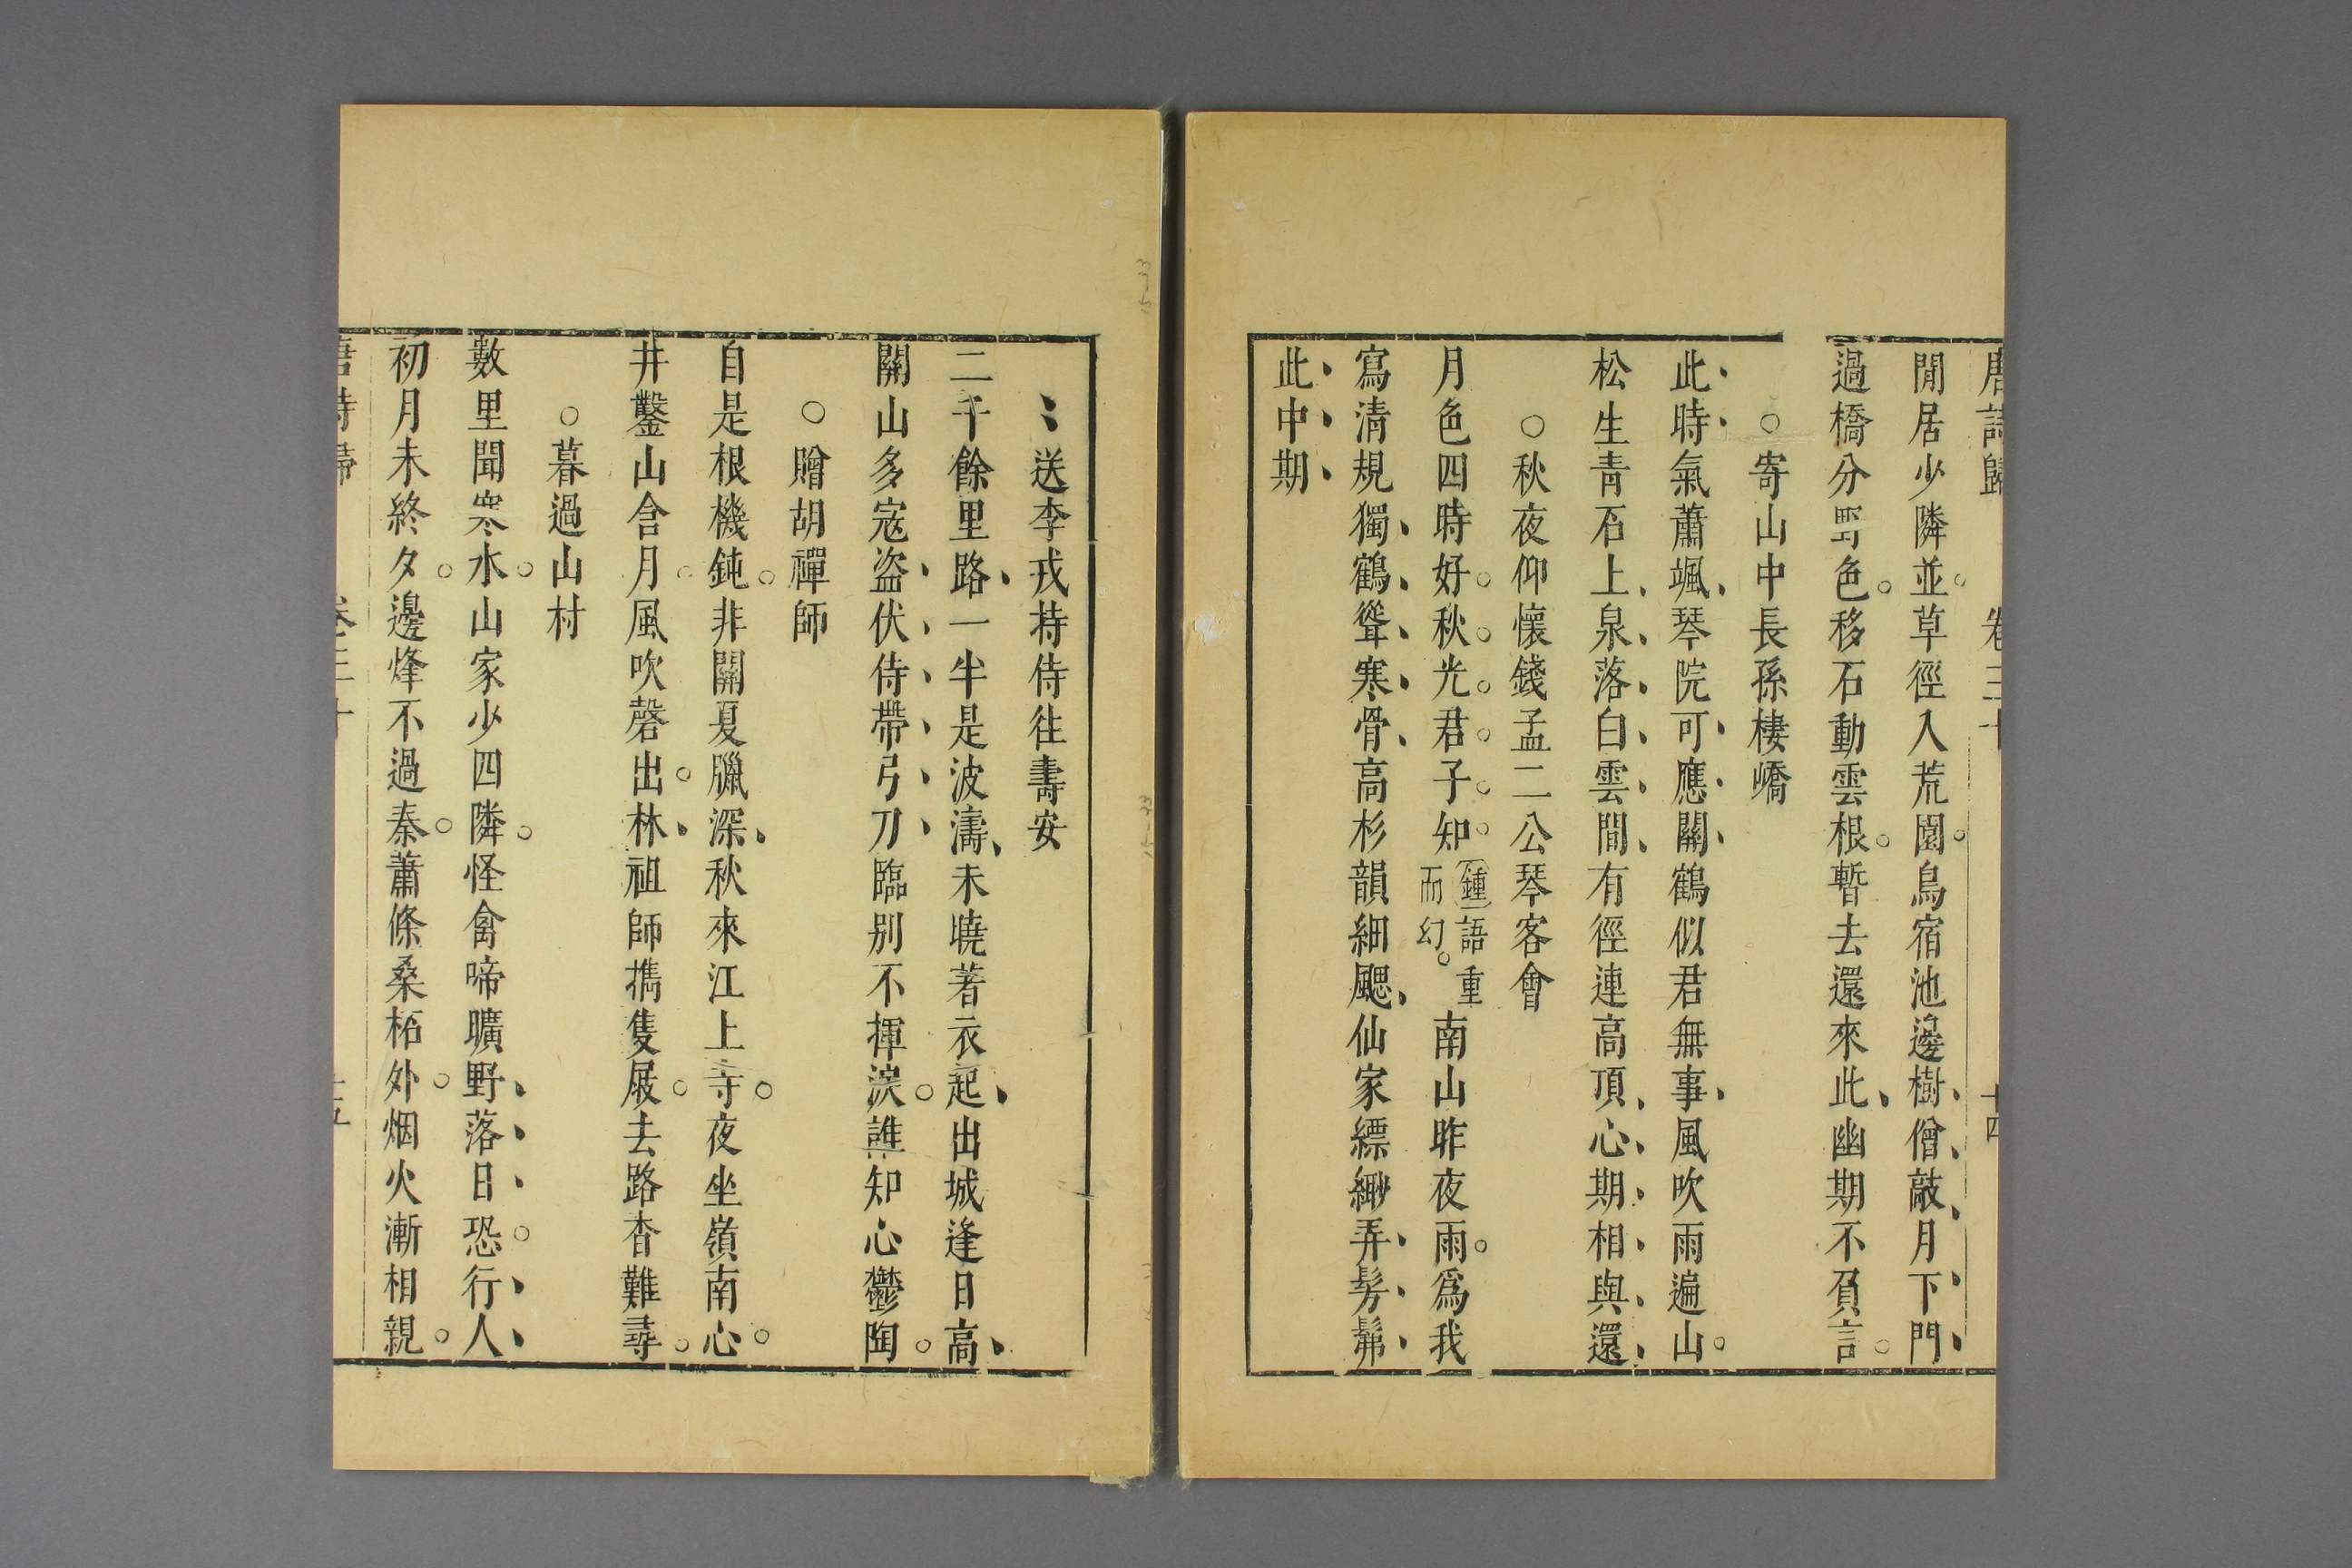 唐詩歸 卷三十 十四
閒居少隣並草徑入荒園鳥宿池邊樹僧敲月下門
過橋分野色移石動雲根暫去還來此幽期不負言
○寄山中長孫棲嶠
此時氣蕭颯琴院可應關鶴似君無事風吹雨遍山
松生青石上泉落白雲間有徑連高頂心期相與還
○秋夜仰懷錢孟二公琴客會
月色四時好秋光君子知
鍾語重
而幻
南山昨夜雨爲我
寫清規獨鶴聳寒骨高杉韻細颸仙家縹緲弄髣髴
此中期
送李戎持侍往壽安
二千餘里路一半是波濤未曉著衣起出城逢日高
關山多寇盜伏侍帶弓刀臨別不揮淚誰知心鬱陶
○贈胡禪師
自是根機鈍非關夏臘深秋來江上寺夜坐嶺南心
井鑿山含月風吹磬出林祖師携隻屐去路杳難尋
○暮過山村
數里聞寒水山家少四隣怪禽啼曠野落日恐行人
初月未終夕邊烽不過秦蕭條桑柘外烟火漸相親
唐詩歸 卷三十 十五